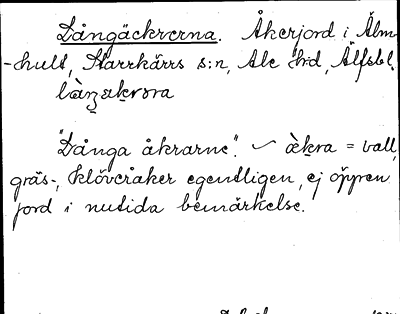 Långäckrerna. Åkerjord i Älm-
-hult, Starrkärrs s:n, Ale h:d, Älfsbl.
"Långa åkrarne". ~ àkra = vall,
gräs-, klöveråker egentligen, ej öppen
jord i nutida bemärkelse.